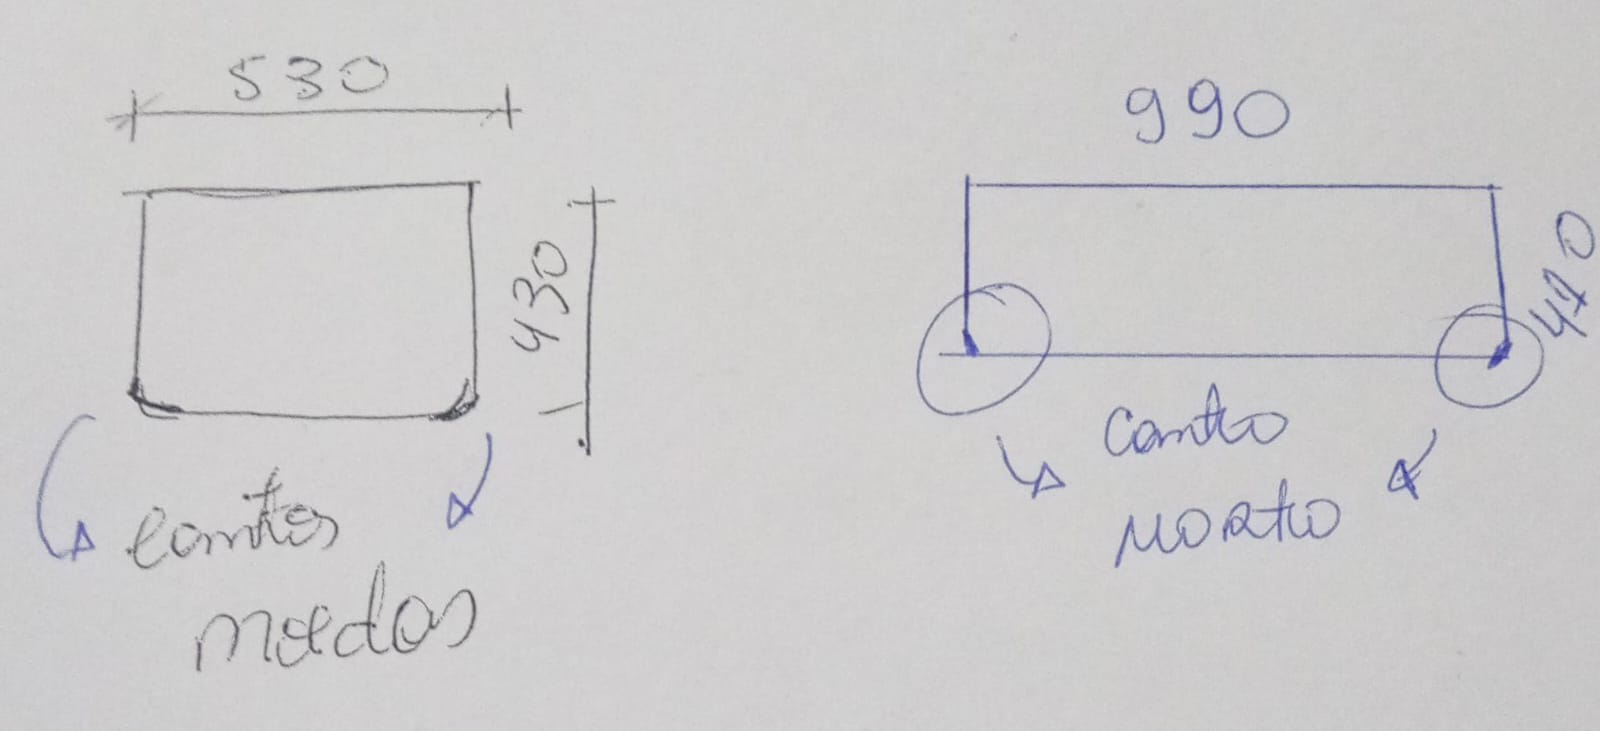 530
430
cantos
990
410
Canto
MORto